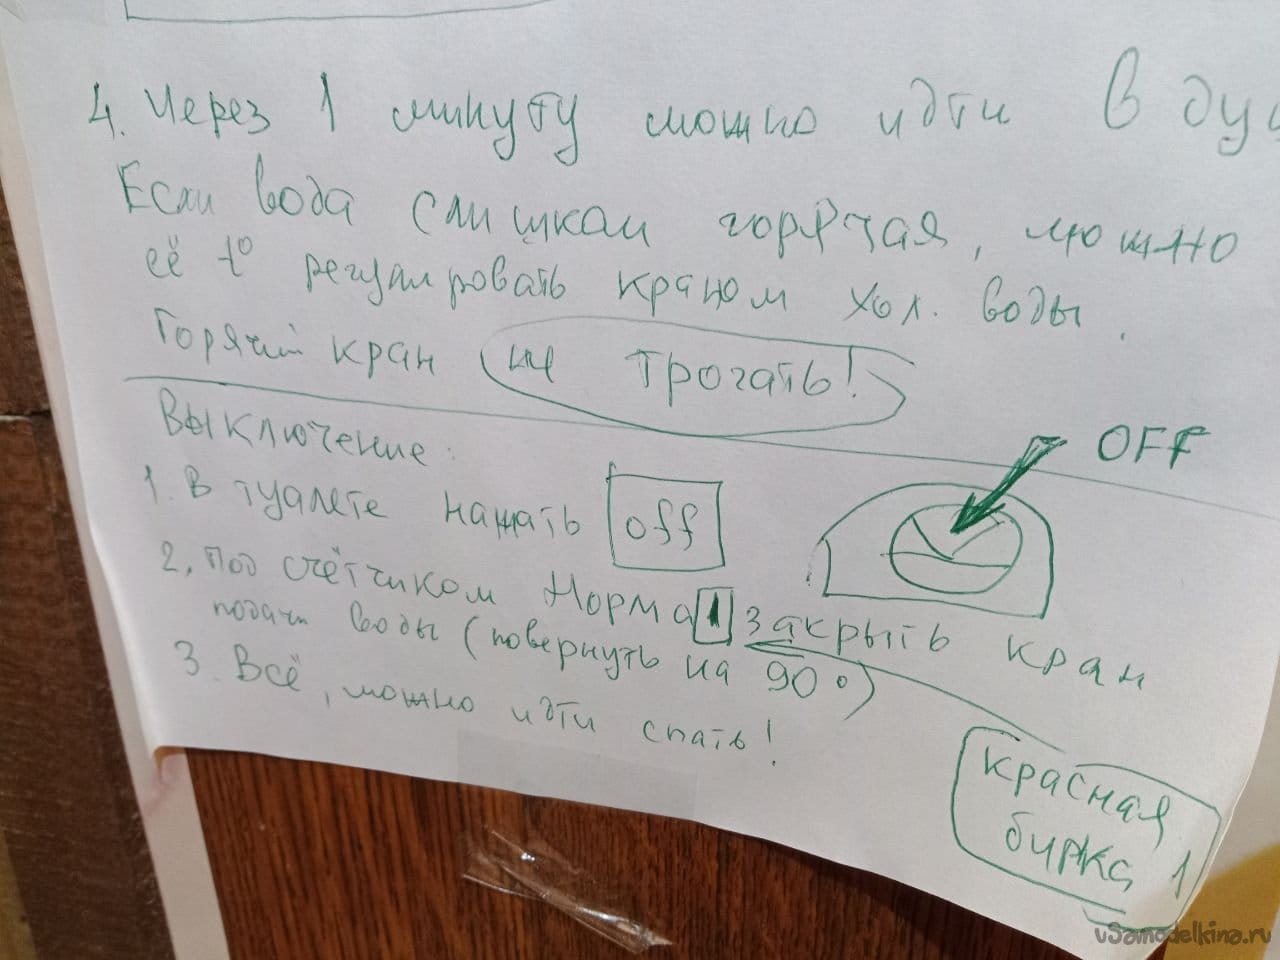 4. Через 1 минуту можно идти в ду
Если вода слишком горячая, можно
её t° регулровать краном хол. воды.
Горячий кран не трогать!
Выключение:
OFF
1. В туалете нажать off
2. Под счётчиком Норма 1 закрыть кран
подачи воды (повернуть на 90°)
3. Всё, можно идти спать!
красная
бирка 1
uSamodelkina.ru